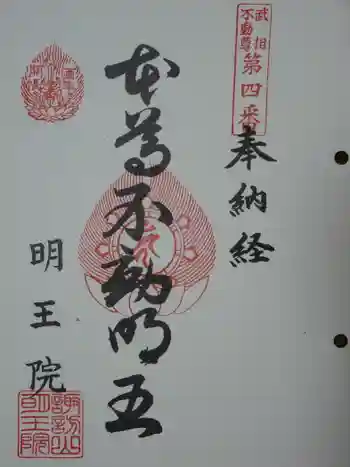 武相
不動尊
第四番
奉納経
本尊不動明王
明王院
諏訪山
明王院